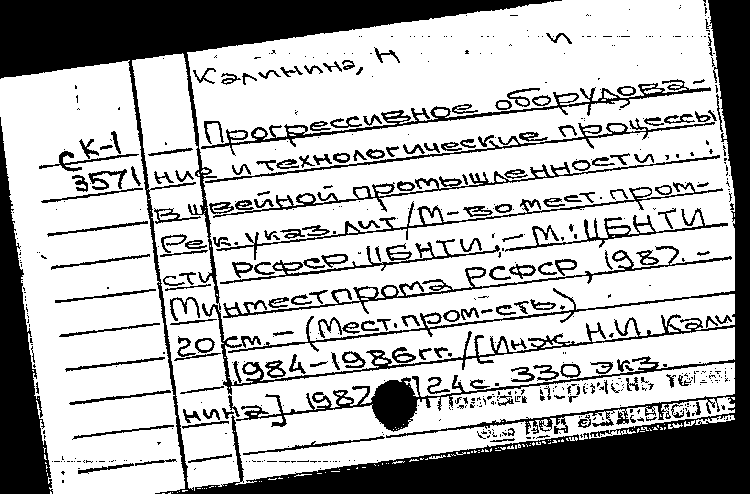 Калинина, Н И
Прогрессивное оборудова-
С К-1
3571 ние и технологические процессы
в швейной промышленности...:
Рек. указ. лит/М-во мест. пром-
сти РСФСР. ЦБНТИ; – М.: ЦБНТИ
Минместпрома РСФСР, 1987. –
20 см. – (Мест. пром-сть.)
1984–1986 гг. /[Инж. Н.И. Кали-
нина]. 1987 24 с. 330 экз.
Полный перечень
под